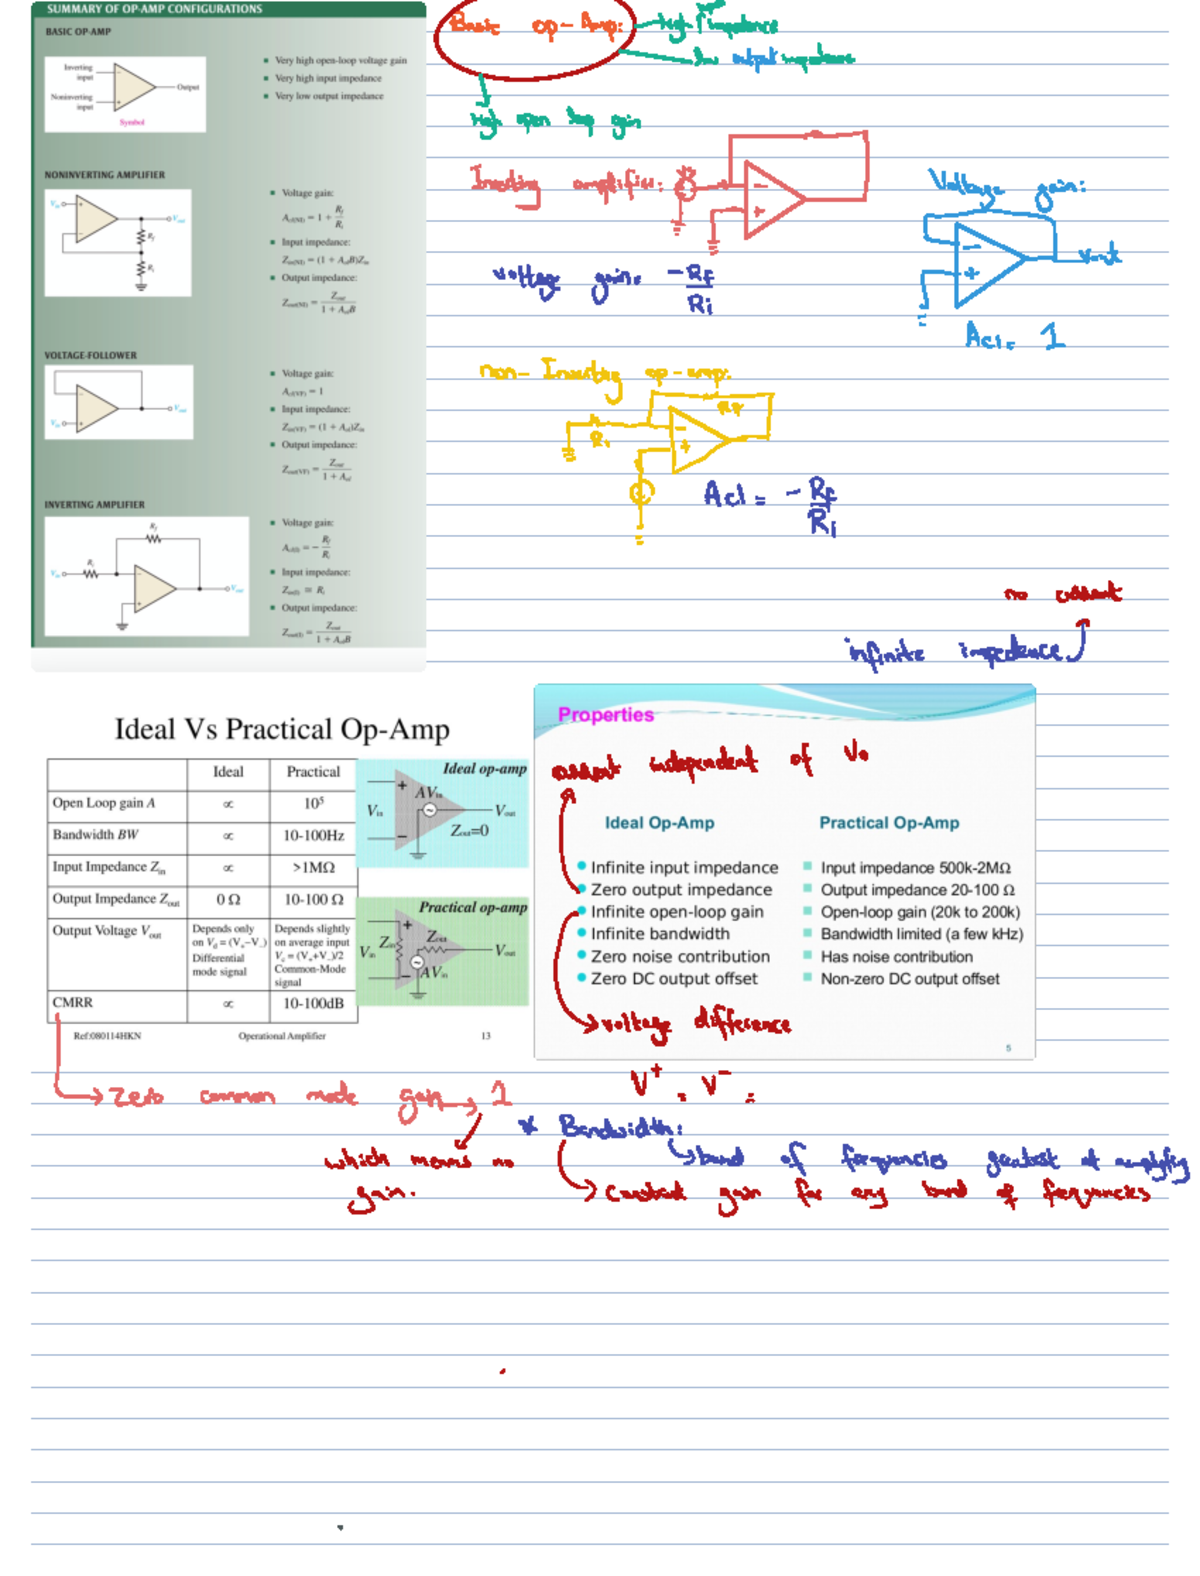 SUMMARY OF OP-AMP CONFIGURATIONS
BASIC OP-AMP
Inverting input
Noninverting input
Output
Symbol
Very high open-loop voltage gain
Very high input impedance
Very low output impedance
NONINVERTING AMPLIFIER
Vin
Vout
Rf
Ri
Voltage gain:
Acl(NI) = 1 + Rf/Ri
Input impedance:
Zin(NI) = (1 + AolB)Zin
Output impedance:
Zout(NI) = Zout/(1 + AolB)
VOLTAGE-FOLLOWER
Vin
Vout
Voltage gain:
Acl(VF) = 1
Input impedance:
Zin(VF) = (1 + Aol)Zin
Output impedance:
Zout(VF) = Zout/(1 + Aol)
INVERTING AMPLIFIER
Rf
Ri
Vin
Vout
Voltage gain:
Acl(I) = − Rf/Ri
Input impedance:
Zin(I) ≅ Ri
Output impedance:
Zout(I) = Zout/(1 + AolB)
Basic op-Amp:
high input impedance
low output impedance
High open loop gain
Inverting amplifier:
voltage gain = -Rf/Ri
Voltage gain:
Vout
Acl = 1
non-Inverting op-amp:
Rf
Ri
Acl = -Rf/Ri
no current
infinite impedance
Ideal Vs Practical Op-Amp
Ideal Practical
Open Loop gain A ∝ 10⁵
Bandwidth BW ∝ 10-100Hz
Input Impedance Zin ∝ >1MΩ
Output Impedance Zout 0 Ω 10-100 Ω
Output Voltage Vout
Depends only on Vd = (V+−V−) Differential mode signal
Depends slightly on average input Vc = (V++V−)/2 Common-Mode signal
CMRR ∝ 10-100dB
Ideal op-amp
Vin
AVin
Vout
Zout=0
Practical op-amp
Vin
Zin
Zout
Vout
AVin
Ref:080114HKN Operational Amplifier 13
Properties
output independent of Vo
Ideal Op-Amp
Infinite input impedance
Zero output impedance
Infinite open-loop gain
Infinite bandwidth
Zero noise contribution
Zero DC output offset
Practical Op-Amp
Input impedance 500k-2MΩ
Output impedance 20-100 Ω
Open-loop gain (20k to 200k)
Bandwidth limited (a few kHz)
Has noise contribution
Non-zero DC output offset
voltage difference
5
V+ = V- =
Zero common mode gain → 1
which means no gain.
* Bandwidth:
band of frequencies greatest at amplifying
Constant gain for any band of frequencies